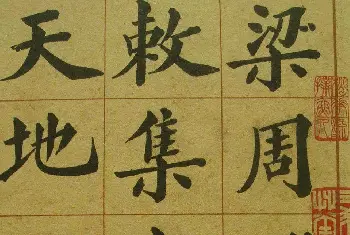 梁周
敕集
天地